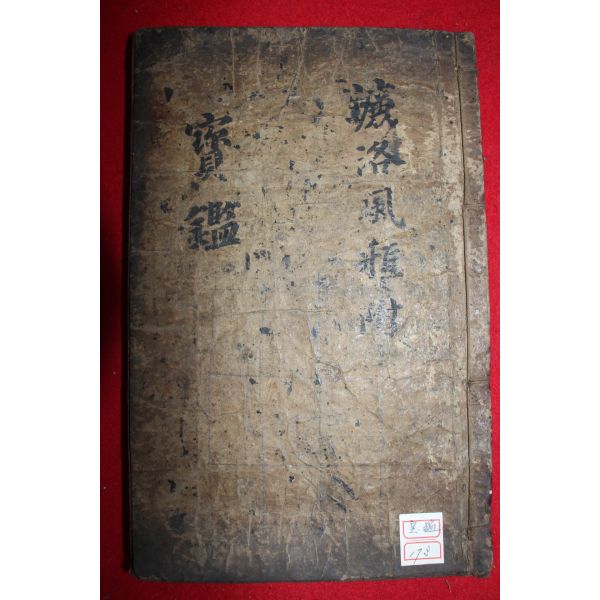 濂洛風雅附
寶鑑
178